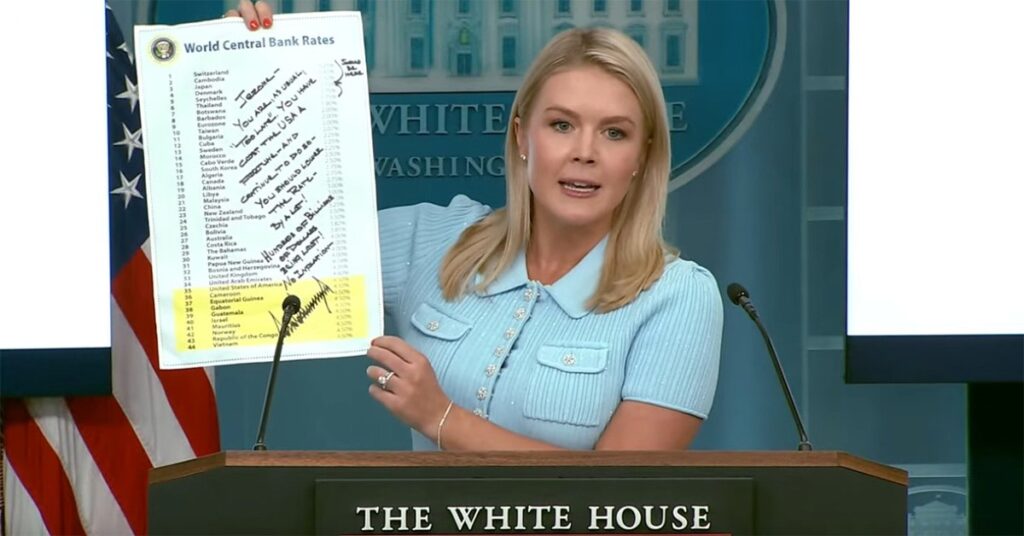 World Central Bank Rates
1 Switzerland
2 Cambodia
3 Japan
4 Denmark
5 Seychelles
6 Thailand
7 Botswana
8 Barbados
9 Eurozone
10 Taiwan
11 Bulgaria
12 Cuba
13 Sweden
14 Morocco
15 Cabo Verde
16 South Korea
17 Algeria
18 Canada
19 Albania
20 Libya
21 Malaysia
22 China
23 New Zealand
24 Trinidad and Tobago
25 Czechia
26 Bolivia
27 Australia
28 Costa Rica
29 The Bahamas
30 Kuwait
31 Papua New Guinea
32 Bosnia and Herzegovina
33 United Kingdom
34 United Arab Emirates
35 United States of America
36 Cameroon
37 Equatorial Guinea
38 Gabon
39 Guatemala
40 Israel
41 Mauritius
42 Norway
43 Republic of the Congo
44 Vietnam
SHOULD
BE
HERE
JEROME–
YOU ARE, AS USUAL,
"TOO LATE" YOU HAVE
COST THE USA A
FORTUNE–AND
CONTINUE TO DO SO–
YOU SHOULD LOWER
THE RATE–
BY A LOT!
HUNDREDS OF BILLIONS
OF DOLLARS
BEING LOST!
NO INFLATION–
WHITE HOUSE
WASHINGTON
THE WHITE HOUSE